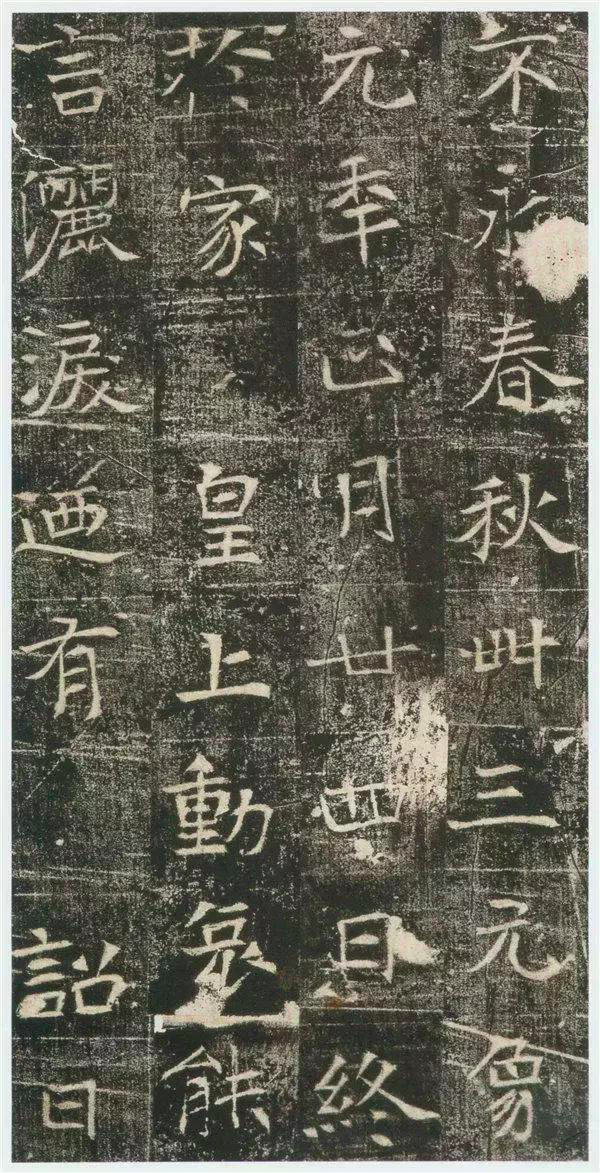 不永春秋卌三元象
元秊正月廿四日終
於家 皇上動哀能
言灑淚迺有 詔曰